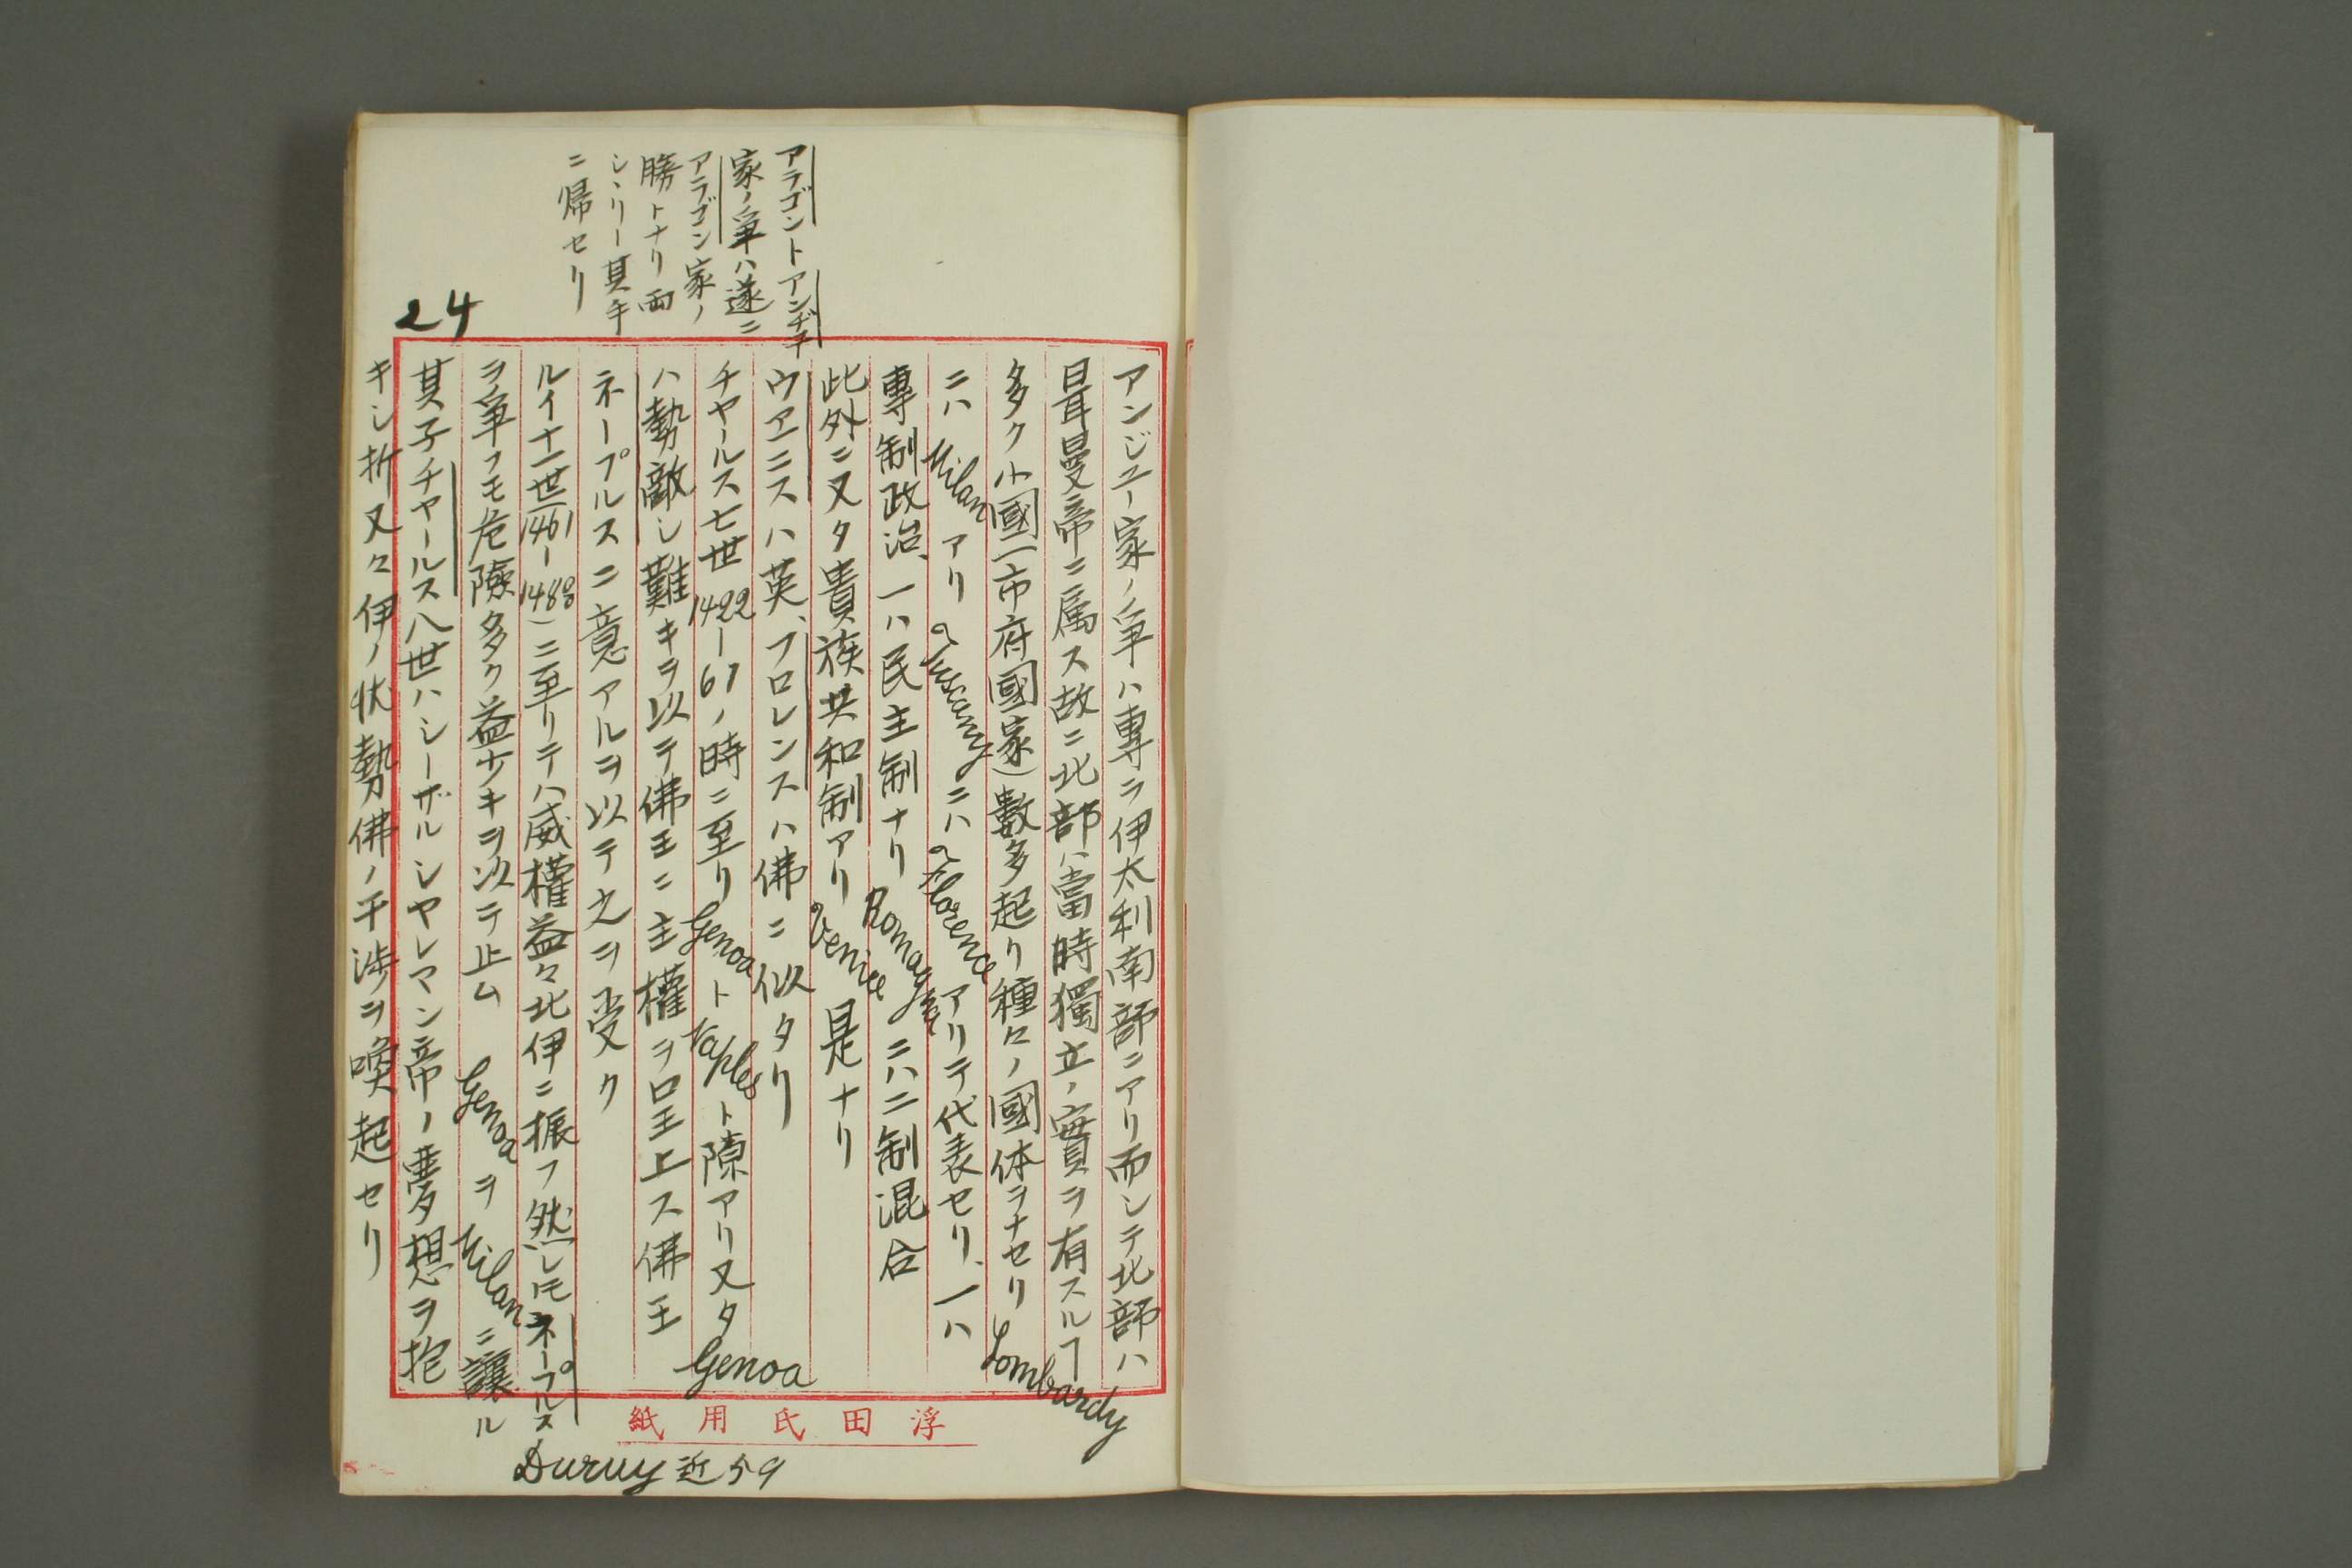 アラゴントアンヂュ
家ノ爭ハ遂ニ
アラゴン家ノ
勝トナリ両
シヽリー其手
ニ帰セリ
24
アンジュー家ノ爭ハ專ラ伊太利南部ニアリ而シテ北部ハ
日耳曼帝ニ属ス故ニ北部ハ當時獨立ノ實ヲ有スルヿ
多ク小國(市府國家)數多起リ種々ノ國体ヲナセリ Lombardy
ニハ Milan アリ Tuscany ニハ Florence アリテ代表セリ、一ハ
專制政治、一ハ民主制ナリ Romagna ニハ二制混合
此外ニ又タ貴族共和制アリ Venice 是ナリ
ヴアニスハ英、フロレンスハ佛ニ似タリ
チヤールス七世 1422—61ノ時ニ至リ Genoa ト Naples ト隙アリ又タ Genoa
ハ勢敵シ難キヲ以テ佛王ニ主權ヲ呈上ス佛王
ネープルスニ意アルヲ以テ之ヲ受ク
ルイ十一世(1461—1483)ニ至リテハ威權益々北伊ニ振フ然レ𪜈ネープルス
ヲ爭フモ危險多ク益少キヲ以テ止ム Genoa ヲ Milan ニ讓ル
其子チヤールス八世ハシーザルシヤレマン帝ノ夢想ヲ抱
キシ折又々伊ノ状勢佛ノ干渉ヲ喚起セリ
浮田氏用紙
Duruy 近59